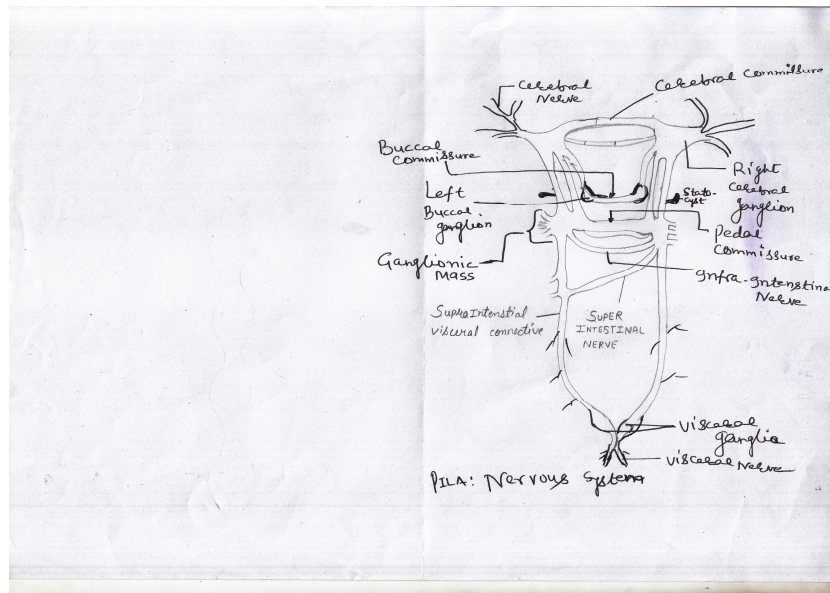 Cerebral
Nerve
Cerebral Commissure
Buccal
Commissure
Right
Cerebral
ganglion
Left
Buccal
ganglion
Stato-
cyst
Pedal
Commissure
Ganglionic
Mass
Infra-Intenstinal
Nerve
SupraIntenstial
visceral connective
SUPER
INTESTINAL
NERVE
Visceral
ganglia
Visceral Nerve
PILA: Nervous System